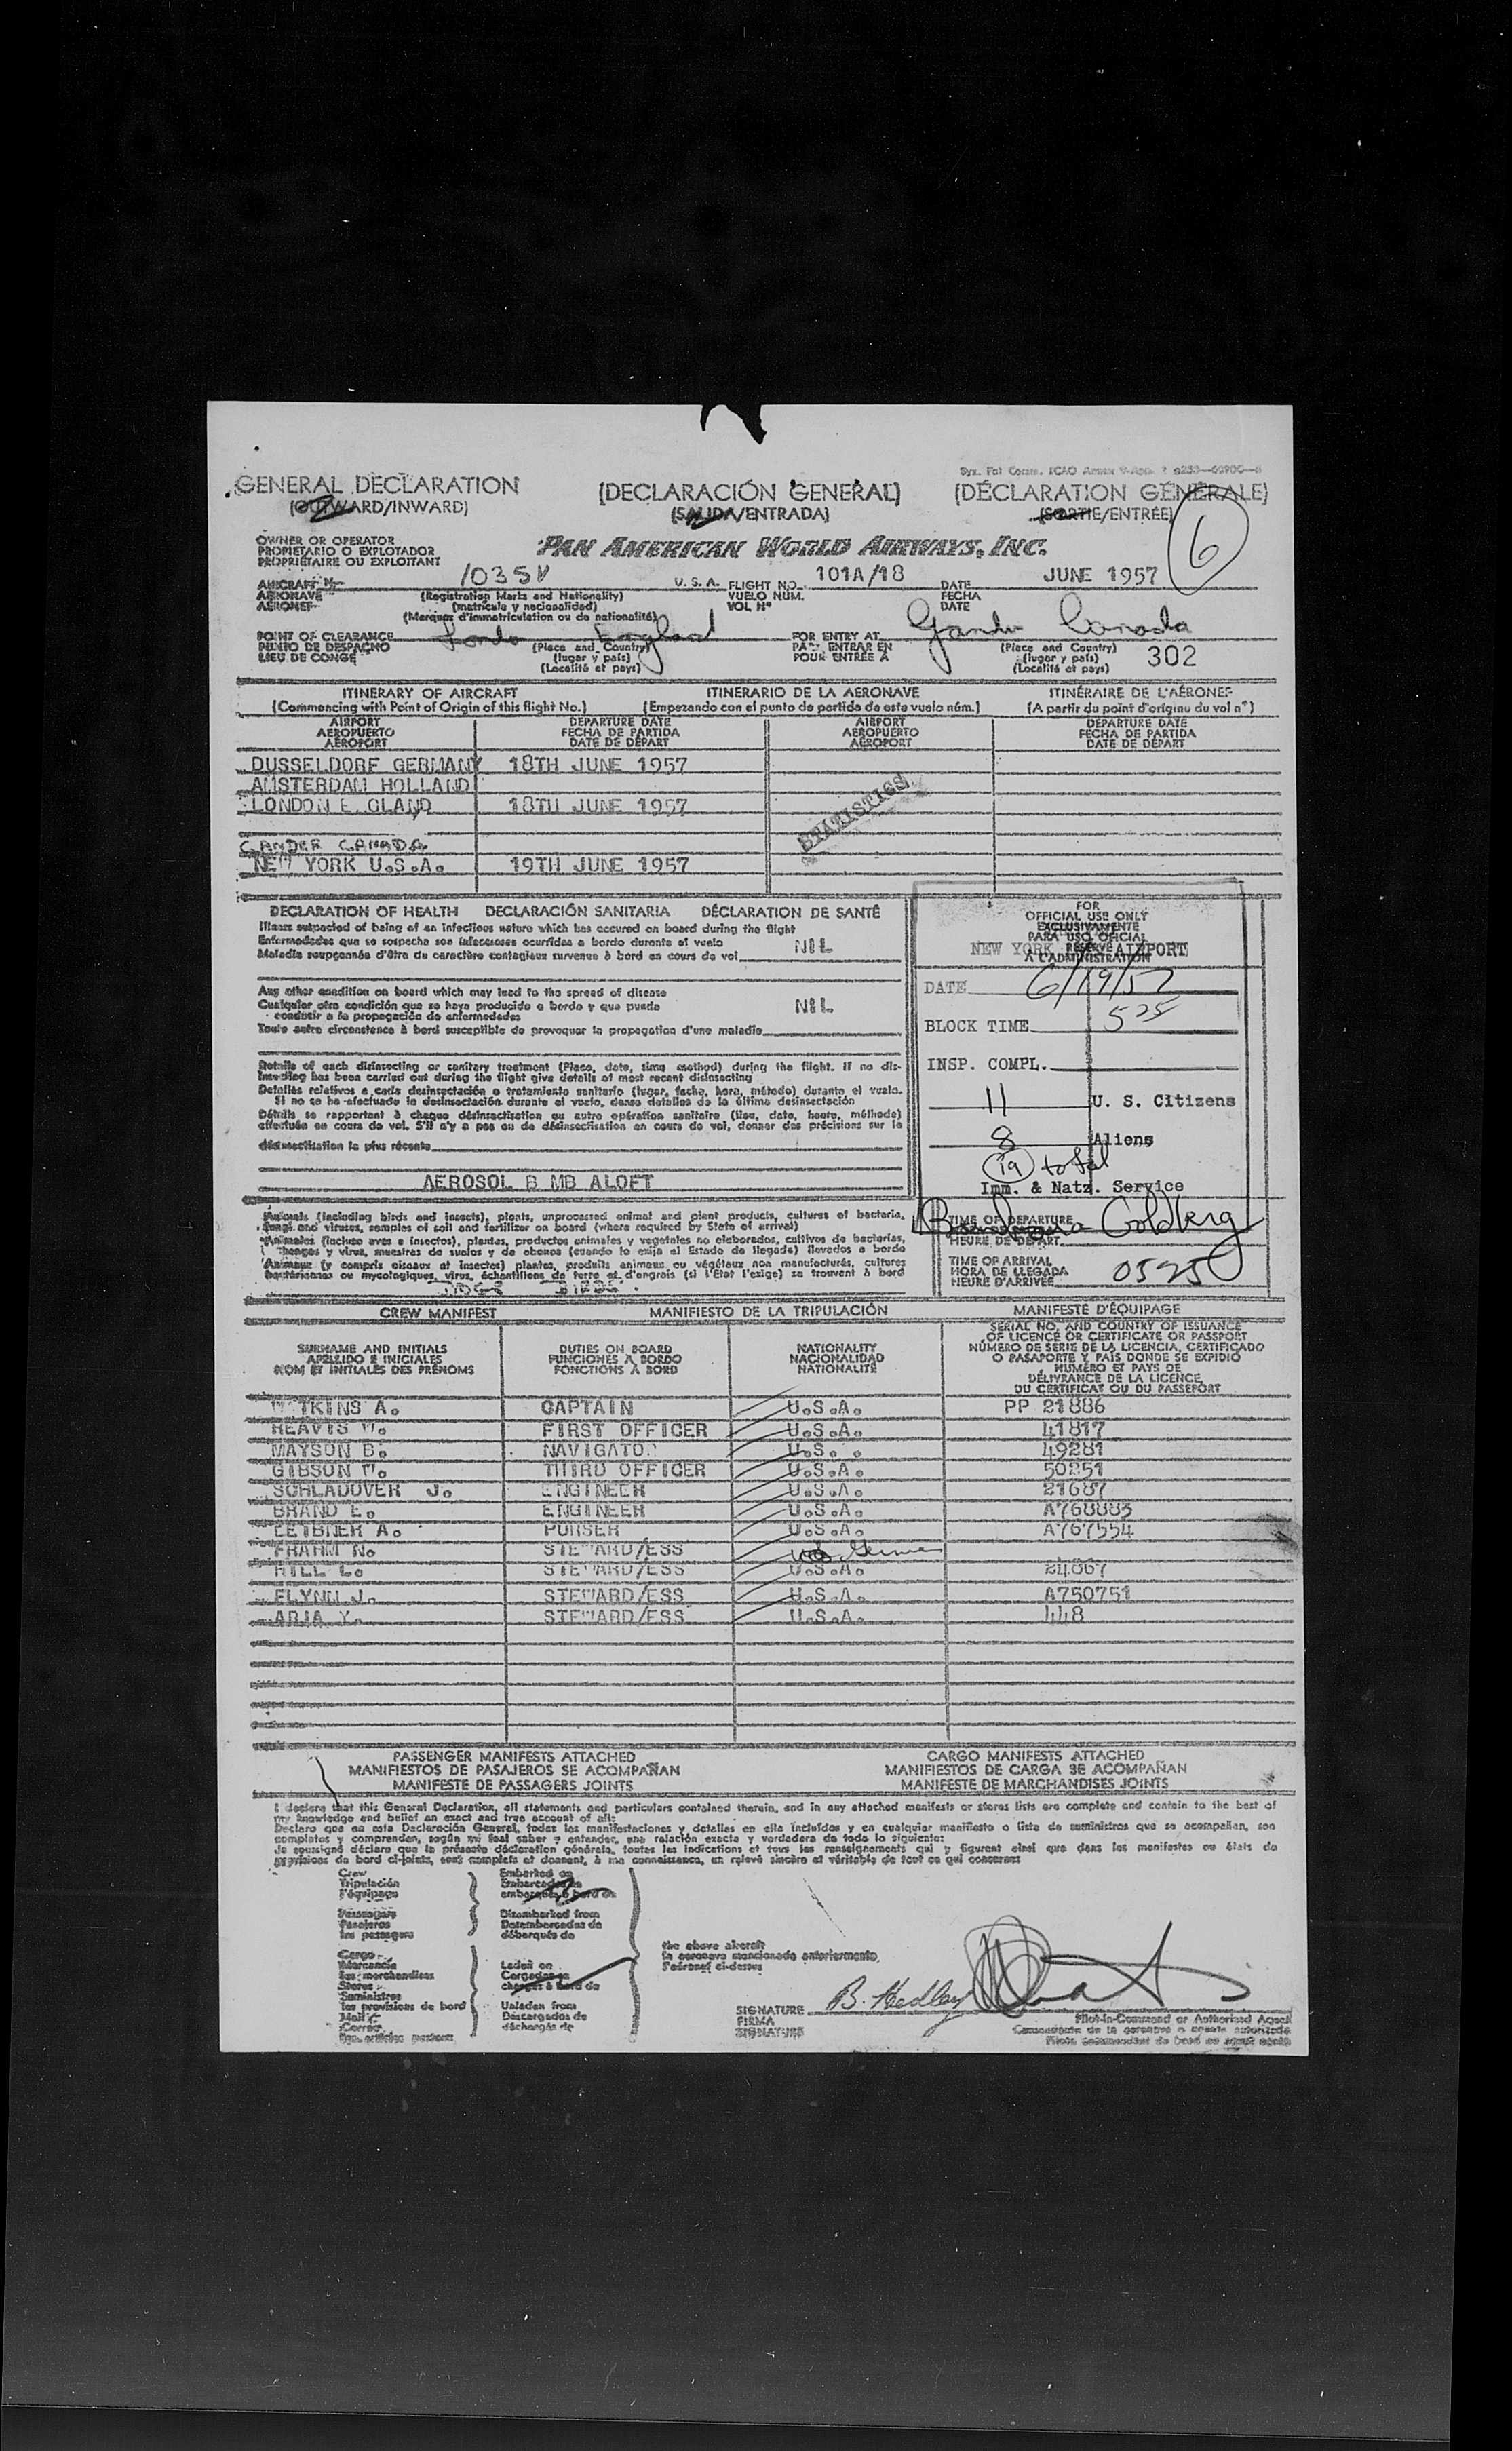 Sys. Pat Comm. ICAO Annex 9-App.
GENERAL DECLARATION (DECLARACIÓN GENERAL) (DÉCLARATION GÉNÉRALE)
(OUTWARD/INWARD) (SALIDA/ENTRADA) (SORTIE/ENTRÉE) 6
OWNER OR OPERATOR
PROPIETARIO O EXPLOTADOR
PROPRIÉTAIRE OU EXPLOITANT
PAN AMERICAN WORLD AIRWAYS, INC.
AIRCRAFT No. 1035V U.S.A. FLIGHT NO. 101A/18 DATE JUNE 1957
AERONAVE (Registration Marks and Nationality) VUELO NÚM. FECHA
AÉRONEF (matrícula y nacionalidad) VOL No DATE
(Marques d'immatriculation ou de nationalité)
POINT OF CLEARANCE London England FOR ENTRY AT Gander Canada
PUNTO DE DESPACHO (Place and Country) PARA ENTRAR EN (Place and Country) 302
LIEU DE CONGÉ (lugar y país) POUR ENTRÉE À (lugar y país)
(Localité et pays) (Localité et pays)
ITINERARY OF AIRCRAFT ITINERARIO DE LA AERONAVE ITINÉRAIRE DE L'AÉRONEF
(Commencing with Point of Origin of this flight No.) (Empezando con el punto de partida de este vuelo núm.) (A partir du point d'origine du vol no)
AIRPORT DEPARTURE DATE AIRPORT DEPARTURE DATE
AEROPUERTO FECHA DE PARTIDA AEROPUERTO FECHA DE PARTIDA
AÉROPORT DATE DE DÉPART AÉROPORT DATE DE DÉPART
DUSSELDORF GERMANY 18TH JUNE 1957
AMSTERDAM HOLLAND
LONDON E. GLAND 18TH JUNE 1957
STATISTICS
GANDER CANADA
NEW YORK U.S.A. 19TH JUNE 1957
DECLARATION OF HEALTH DECLARACIÓN SANITARIA DÉCLARATION DE SANTÉ
Illness suspected of being of an infectious nature which has occured on board during the flight
Enfermedades que se sospecha son infecciosas ocurridas a bordo durante el vuelo NIL
Maladie soupçonnée d'être du caractère contagieux survenue à bord en cours de vol
Any other condition on board which may lead to the spread of disease
Cualquier otra condición que se haya producido a bordo y que pueda NIL
conducir a la propagación de enfermedades
Toute autre circonstance à bord susceptible de provoquer la propagation d'une maladie
Details of each disinsecting or sanitary treatment (Place, date, time method) during the flight. If no dis-
insecting has been carried out during the flight give details of most recent disinsecting
Detalles relativos a cada desinsectación o tratamiento sanitario (lugar, fecha, hora, método) durante el vuelo.
Si no se ha efectuado la desinsectación durante el vuelo, dense detalles de la última desinsectación
Détails se rapportant à chaque désinsectisation ou autre opération sanitaire (lieu, date, heure, méthode)
effectuée en cours de vol. S'il n'y a pas eu de désinsectisation en cours de vol, donner des précisions sur la
désinsectisation la plus récente
AEROSOL B MB ALOFT
FOR
OFFICIAL USE ONLY
EXCLUSIVAMENTE
PARA USO OFICIAL
RÉSERVÉ
À L'ADMINISTRATION
NEW YORK AIRPORT
DATE 6/19/57
BLOCK TIME 525
INSP. COMPL.
11 U. S. Citizens
8 Aliens
19 total
Imm. & Natz. Service
Goldberg
Animals (including birds and insects), plants, unprocessed animal and plant products, cultures of bacteria,
fungi and viruses, samples of soil and fertilizer on board (where required by State of arrival)
Animales (incluso aves e insectos), plantas, productos animales y vegetales no elaborados, cultivos de bacterias,
hongos y virus, muestras de suelos y de abonos (cuando lo exija el Estado de llegada) llevados a bordo
Animaux (y compris oiseaux et insectes) plantes, produits animaux ou végétaux non manufacturés, cultures
bactériennes ou mycologiques, virus, échantillons de terre et d'engrais (si l'État l'exige) se trouvent à bord
TIME OF DEPARTURE
HEURE DE DÉPART
TIME OF ARRIVAL
HORA DE LLEGADA 0525
HEURE D'ARRIVÉE
CREW MANIFEST MANIFIESTO DE LA TRIPULACIÓN MANIFESTE D'ÉQUIPAGE
SURNAME AND INITIALS
APELLIDO E INICIALES
NOM ET INITIALES DES PRÉNOMS
DUTIES ON BOARD
FUNCIONES A BORDO
FONCTIONS À BORD
NATIONALITY
NACIONALIDAD
NATIONALITÉ
SERIAL NO. AND COUNTRY OF ISSUANCE
OF LICENCE OR CERTIFICATE OR PASSPORT
NÚMERO DE SERIE DE LA LICENCIA, CERTIFICADO
O PASAPORTE Y PAÍS DONDE SE EXPIDIÓ
NUMÉRO ET PAYS DE
DÉLIVRANCE DE LA LICENCE,
DU CERTIFICAT OU DU PASSEPORT
W TKINS A. CAPTAIN U.S.A. PP 21886
REAVIS W. FIRST OFFICER U.S.A. 41817
MAYSON B. NAVIGATOR U.S. . 49281
GIBSON W. THIRD OFFICER U.S.A. 50251
SCHLADOVER J. ENGINEER U.S.A. 21687
BRAND E. ENGINEER U.S.A. A768883
LEIBNER A. PURSER U.S.A. A767554
FRAHM N. STEWARD/ESS
HILL L. STEWARD/ESS U.S.A. 24867
FLYNN J. STEWARD/ESS U.S.A. A750751
ARIA Y. STEWARD/ESS U.S.A. 448
PASSENGER MANIFESTS ATTACHED CARGO MANIFESTS ATTACHED
MANIFIESTOS DE PASAJEROS SE ACOMPAÑAN MANIFIESTOS DE CARGA SE ACOMPAÑAN
MANIFESTE DE PASSAGERS JOINTS MANIFESTE DE MARCHANDISES JOINTS
I declare that this General Declaration, all statements and particulars contained therein, and in any attached manifests or stores lists are complete and contain to the best of
my knowledge and belief an exact and true account of all:
Declaro que en esta Declaración General, todas las manifestaciones y detalles en ella incluídos y en cualquier manifiesto o lista de suministros que se acompañan, son
completos y comprenden, según mi leal saber y entender, una relación exacta y verdadera de todo lo siguiente:
Je soussigné déclare que la présente déclaration générale, toutes les indications et tous les renseignements qui y figurent ainsi que dans les manifestes ou états de
provisions de bord ci-joints, sont complets et donnent, à ma connaissance, un relevé sincère et véritable de tout ce qui concerne:
Crew Embarked on
Tripulación Embarcados en
l'équipage embarqués à bord de
Passengers Disembarked from
Pasajeros Desembarcados de
les passagers débarqués de
Cargo
Mercancía
les marchandises
Stores
Suministros
les provisions de bord
Mail
Correo
Laden on
Cargados en
chargés à bord de
Unladen from
Descargados de
déchargés de
the above aircraft
la aeronave mencionada anteriormente
l'aéronef ci-dessus
SIGNATURE B. Hedley
FIRMA
SIGNATURE
Pilot-in-Command or Authorized Agent
Comandante de la aeronave o agente autorizado